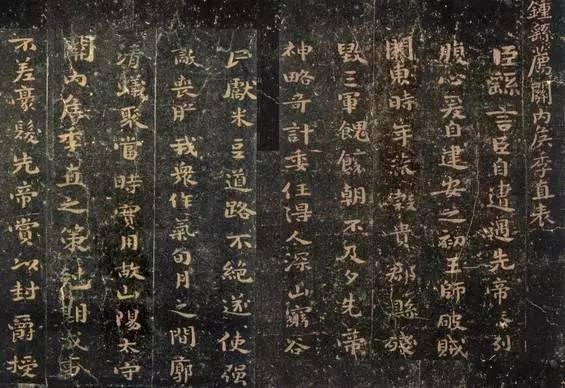 鍾繇薦關内矦季直表
臣繇言臣自遭遇先帝忝列
腹心爰自建安之初王師破賊
關東時年荒穀貴郡縣殘
毀三軍餽饟朝不及夕先帝
神略奇計委任得人深山窮谷
民獻米豆道路不絕遂使强
敵喪膽我衆作氣旬月之間廓
清蟻聚當時實用故山陽太守
關内矦季直之策尅期成事
不差豪髮先帝賞以封爵授